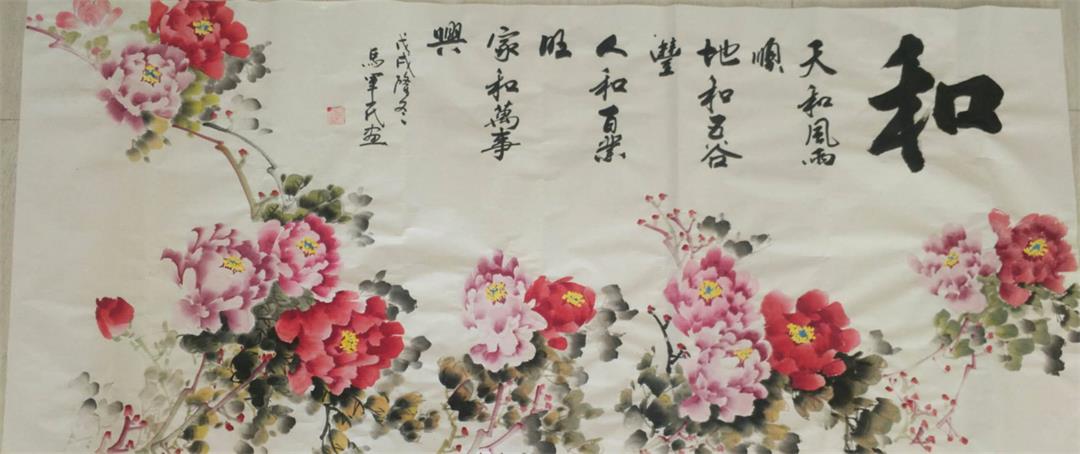 和
天和風雨
順
地和五谷
豐
人和百業
旺
家和萬事
興
戊戌隆冬
馬軍民画